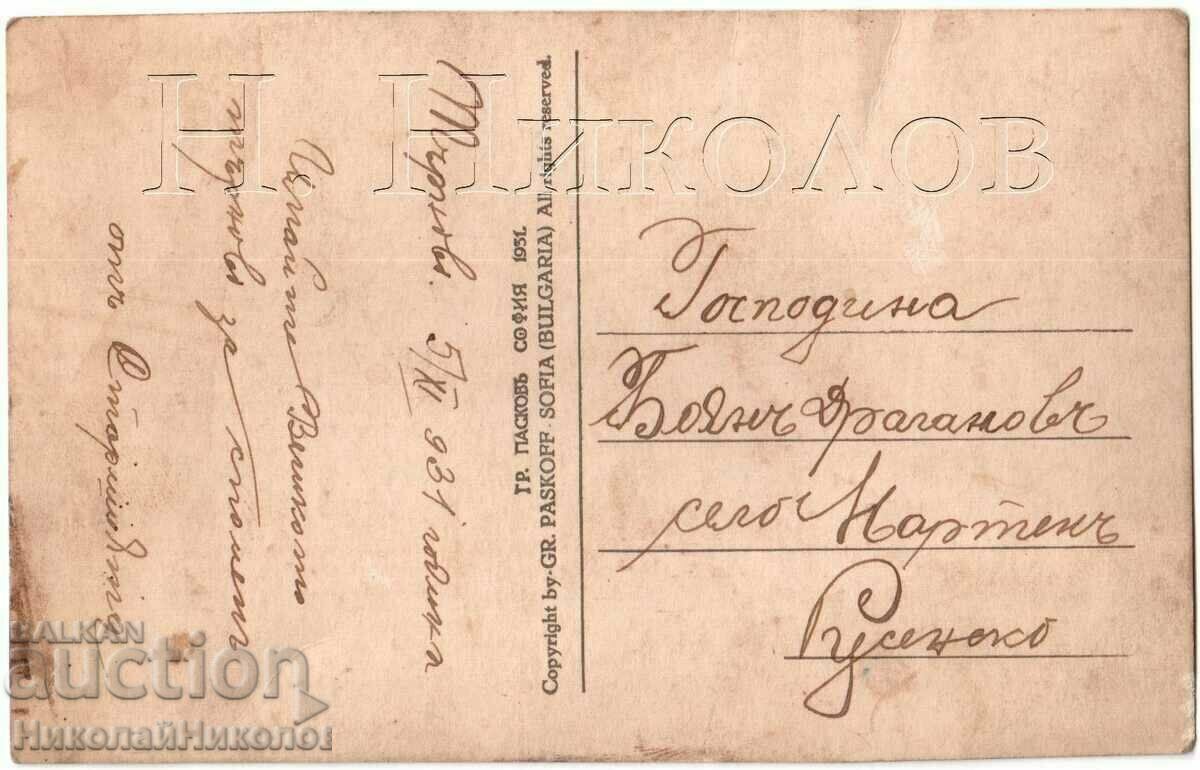 Н. НИКОЛОВ
Търново. 5/XI 931 година
Великото
Търново за споменъ
отъ
ГР. ПАСКОВЪ СОФИЯ 1931.
Copyright by-GR. PASKOFF-SOFIA (BULGARIA) All rights reserved.
Господина
Боянъ Драгановъ
село Мартенъ
Русенско
BALKAN
auction
НиколайНиколов